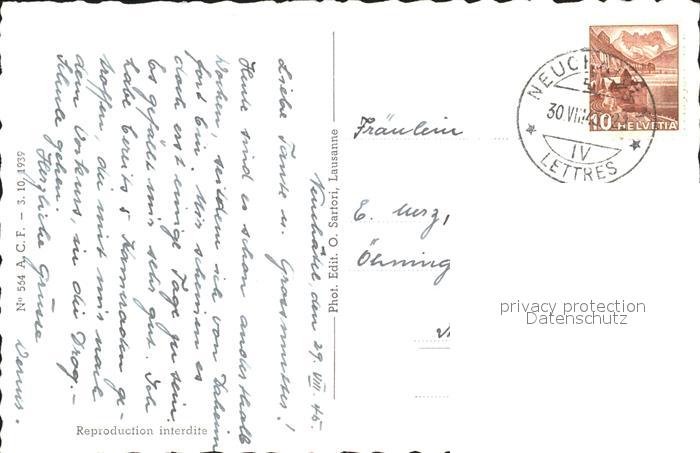 Neuchâtel, den 29. VIII. 45.
Liebe Tante u. Grossmutter!
Heute sind es schon anderthalb
Wochen, seitdem ich von Daheim
fort bin. Mir scheinen es
doch erst einige Tage zu sein.
Es gefällt mir sehr gut. Ich
habe bereits 5 Kameraden ge-
troffen, die mit mir nach
dem Vorkurs, in die Drog.-
Schule gehen.
Herzliche Grüsse
Nº 564 A. C. F. — 3. 10. 1939
Reproduction interdite
Phot. Edit. O. Sartori, Lausanne
Fräulein
E. Merz,
Öhning
NEUCH
30 VIII
IV
LETTRES
10 HELVETIA
privacy protection
Datenschutz